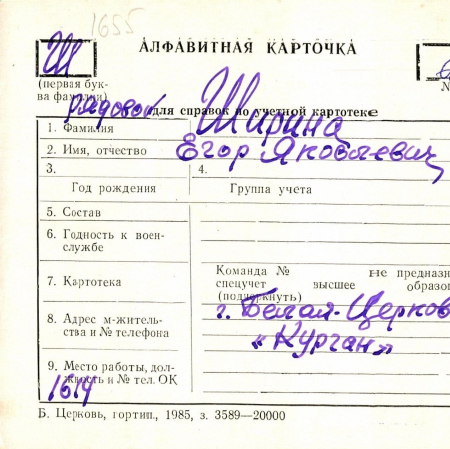 1655
АЛФАВИТНАЯ КАРТОЧКА
Ш
(первая бук-
ва фамилии)
№
рядовой
для справок по учетной картотеке
1. Фамилия Ширина
2. Имя, отчество Егор Яковлевич
3. 4.
Год рождения Группа учета
5. Состав
6. Годность к воен-
службе
7. Картотека
Команда № не предназн
спецучет высшее образо
(подчеркнуть)
8. Адрес м-житель-
ства и № телефона
г. Белая-Церков
«Курган»
9. Место работы, дол-
жность и № тел. ОК
1614
Б. Церковь, гортип., 1985, з. 3589—20000